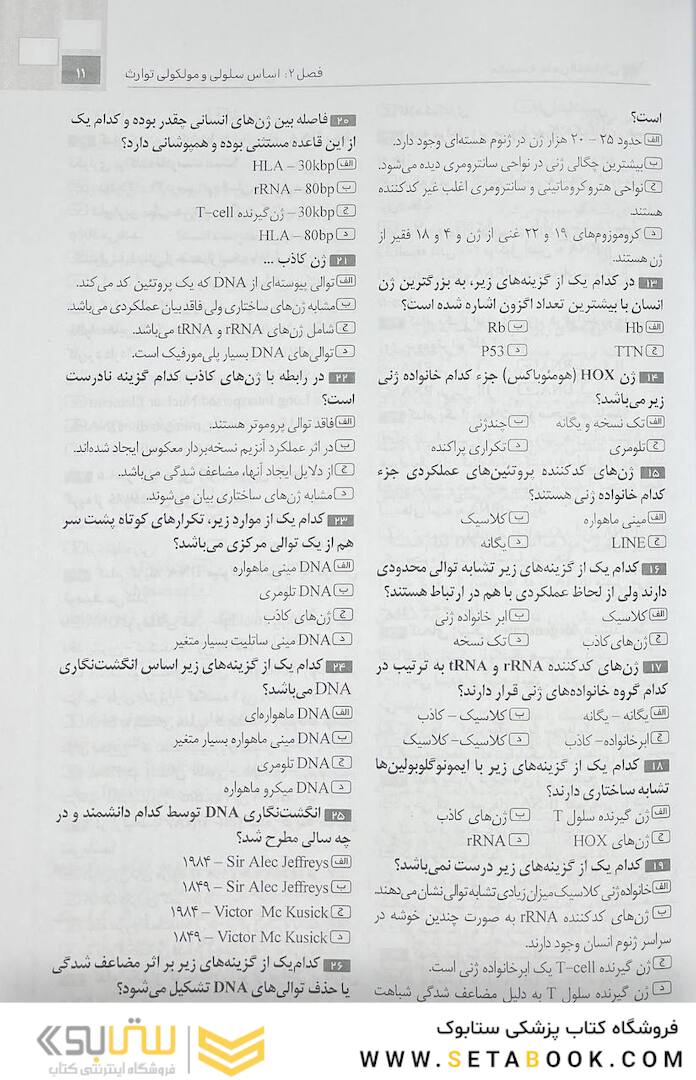 فصل ۲: اساس سلولی و مولکولی توارث
۱۱
است؟
الف حدود ۲۵ – ۲۰ هزار ژن در ژنوم هسته‌ای وجود دارد.
ب بیشترین چگالی ژنی در نواحی سانترومری دیده می‌شود.
ج نواحی هتروکروماتینی و سانترومری اغلب غیر کدکننده
هستند.
د کروموزوم‌های ۱۹ و ۲۲ غنی از ژن و ۴ و ۱۸ فقیر از
ژن هستند.
۱۳ در کدام یک از گزینه‌های زیر، به بزرگترین ژن
انسان با بیشترین تعداد اگزون اشاره شده است؟
الف Hb ب Rb
ج TTN د P53
۱۴ ژن HOX (هومئوباکس) جزء کدام خانواده ژنی
زیر می‌باشد؟
الف تک نسخه و یگانه ب چندژنی
ج تلومری د تکراری پراکنده
۱۵ ژن‌های کدکننده پروتئین‌های عملکردی جزء
کدام خانواده ژنی هستند؟
الف مینی ماهواره ب کلاسیک
ج LINE د یگانه
۱۶ کدام یک از گزینه‌های زیر تشابه توالی محدودی
دارند ولی از لحاظ عملکردی با هم در ارتباط هستند؟
الف کلاسیک ب ابر خانواده ژنی
ج ژن‌های کاذب د تک نسخه
۱۷ ژن‌های کدکننده rRNA و tRNA به ترتیب در
کدام گروه خانواده‌های ژنی قرار دارند؟
الف یگانه – یگانه ب کلاسیک – کاذب
ج ابرخانواده– کاذب د کلاسیک– کلاسیک
۱۸ کدام یک از گزینه‌های زیر با ایمونوگلوبولین‌ها
تشابه ساختاری دارند؟
الف ژن گیرنده سلول T ب ژن‌های کاذب
ج ژن‌های HOX د rRNA
۱۹ کدام یک از گزینه‌های زیر درست نمی‌باشد؟
الف خانواده ژنی کلاسیک میزان زیادی تشابه توالی نشان می‌دهند.
ب ژن‌های کدکننده rRNA به صورت چندین خوشه در
سراسر ژنوم انسان وجود دارند.
ج ژن گیرنده T-cell یک ابرخانواده ژنی است.
د ژن گیرنده سلول T به دلیل مضاعف شدگی شباهت
۲۰ فاصله بین ژن‌های انسانی چقدر بوده و کدام یک
از این قاعده مستثنی بوده و همپوشانی دارد؟
الف HLA – 30kbp
ب rRNA – 80bp
ج 30kbp – ژن گیرنده T-cell
د HLA – 80bp
۲۱ ژن کاذب ...
الف توالی پیوسته‌ای از DNA که یک پروتئین کد می‌کند.
ب مشابه ژن‌های ساختاری ولی فاقد بیان عملکردی می‌باشد.
ج شامل ژن‌های rRNA و tRNA می‌باشد.
د توالی‌های DNA بسیار پلی‌مورفیک است.
۲۲ در رابطه با ژن‌های کاذب کدام گزینه نادرست
است؟
الف فاقد توالی پروموتر هستند.
ب در اثر عملکرد آنزیم نسخه‌بردار معکوس ایجاد شده‌اند.
ج از دلایل ایجاد آنها، مضاعف شدگی می‌باشد.
د مشابه ژن‌های ساختاری بیان می‌شوند.
۲۳ کدام یک از موارد زیر، تکرارهای کوتاه پشت سر
هم از یک توالی مرکزی می‌باشد؟
الف DNA مینی ماهواره
ب DNA تلومری
ج ژن‌های کاذب
د DNA مینی ساتلیت بسیار متغیر
۲۴ کدام یک از گزینه‌های زیر اساس انگشت‌نگاری
DNA می‌باشد؟
الف DNA ماهواره‌ای
ب DNA مینی ماهواره بسیار متغیر
ج DNA تلومری
د DNA میکرو ماهواره
۲۵ انگشت‌نگاری DNA توسط کدام دانشمند و در
چه سالی مطرح شد؟
الف Sir Alec Jeffreys – ۱۹۸۴
ب Sir Alec Jeffreys – ۱۸۴۹
ج Victor Mc Kusick – ۱۹۸۴
د Victor Mc Kusick – ۱۸۴۹
۲۶ کدام‌یک از گزینه‌های زیر بر اثر مضاعف شدگی
یا حذف توالی‌های DNA تشکیل می‌شود؟
فروشگاه کتاب پزشکی ستابوک
WWW.SETABOOK.COM
ستابوک
فروشگاه اینترنتی کتاب